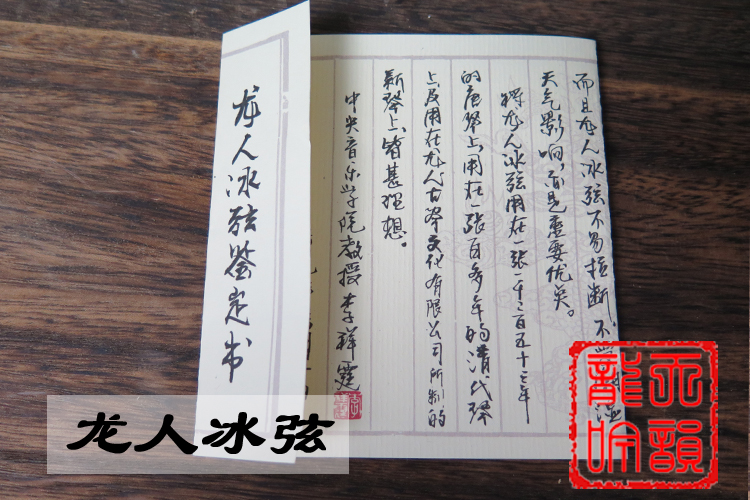 而且龙人冰弦不易拉断 不
天气影响，亦是重要优点。
将龙人冰弦用在一张一千二百五十三年
的唐琴上，用在一张百多年的清代琴
上及用在龙人古琴文化有限公司所制的
新琴上皆甚理想。
中央音乐学院教授 李祥霆
龙人冰弦鉴定书
龙人冰弦
天韻
龍吟